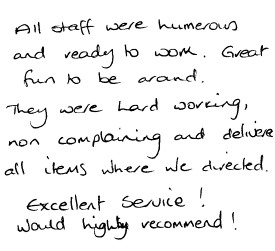 All staff were humerous
and ready to work. Great
fun to be around.
They were hard working,
non complaining and delivere
all items where we directed.
Excellent Service !
Would highly recommend !